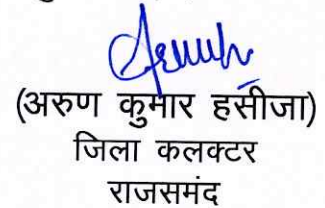 (अरुण कुमार हसीजा)
जिला कलक्टर
राजसमंद